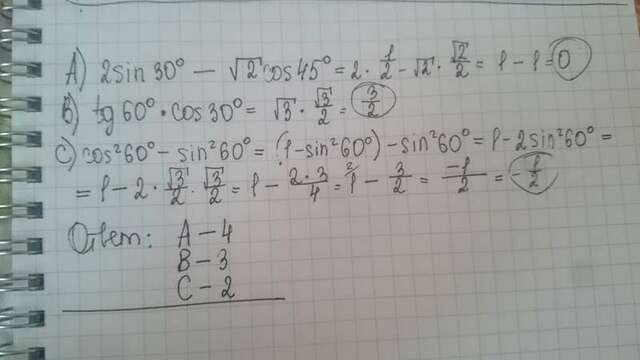 A) 2sin30° — √2cos45° = 2 · 1/2 - √2 · √2/2 = 1 - 1 = 0
B) tg60° · cos30° = √3 · √3/2 = 3/2
C) cos²60° - sin²60° = (1 - sin²60°) - sin²60° = 1 - 2sin²60° =
= 1 - 2 · √3/2 · √3/2 = 1 - 2·3/4 = 1² - 3/2 = -1/2 = -1/2
Ответ: A — 4
B — 3
C — 2